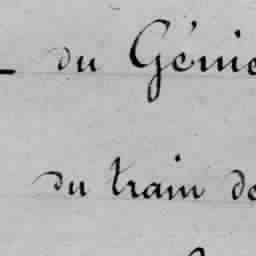 du Génie
du train de